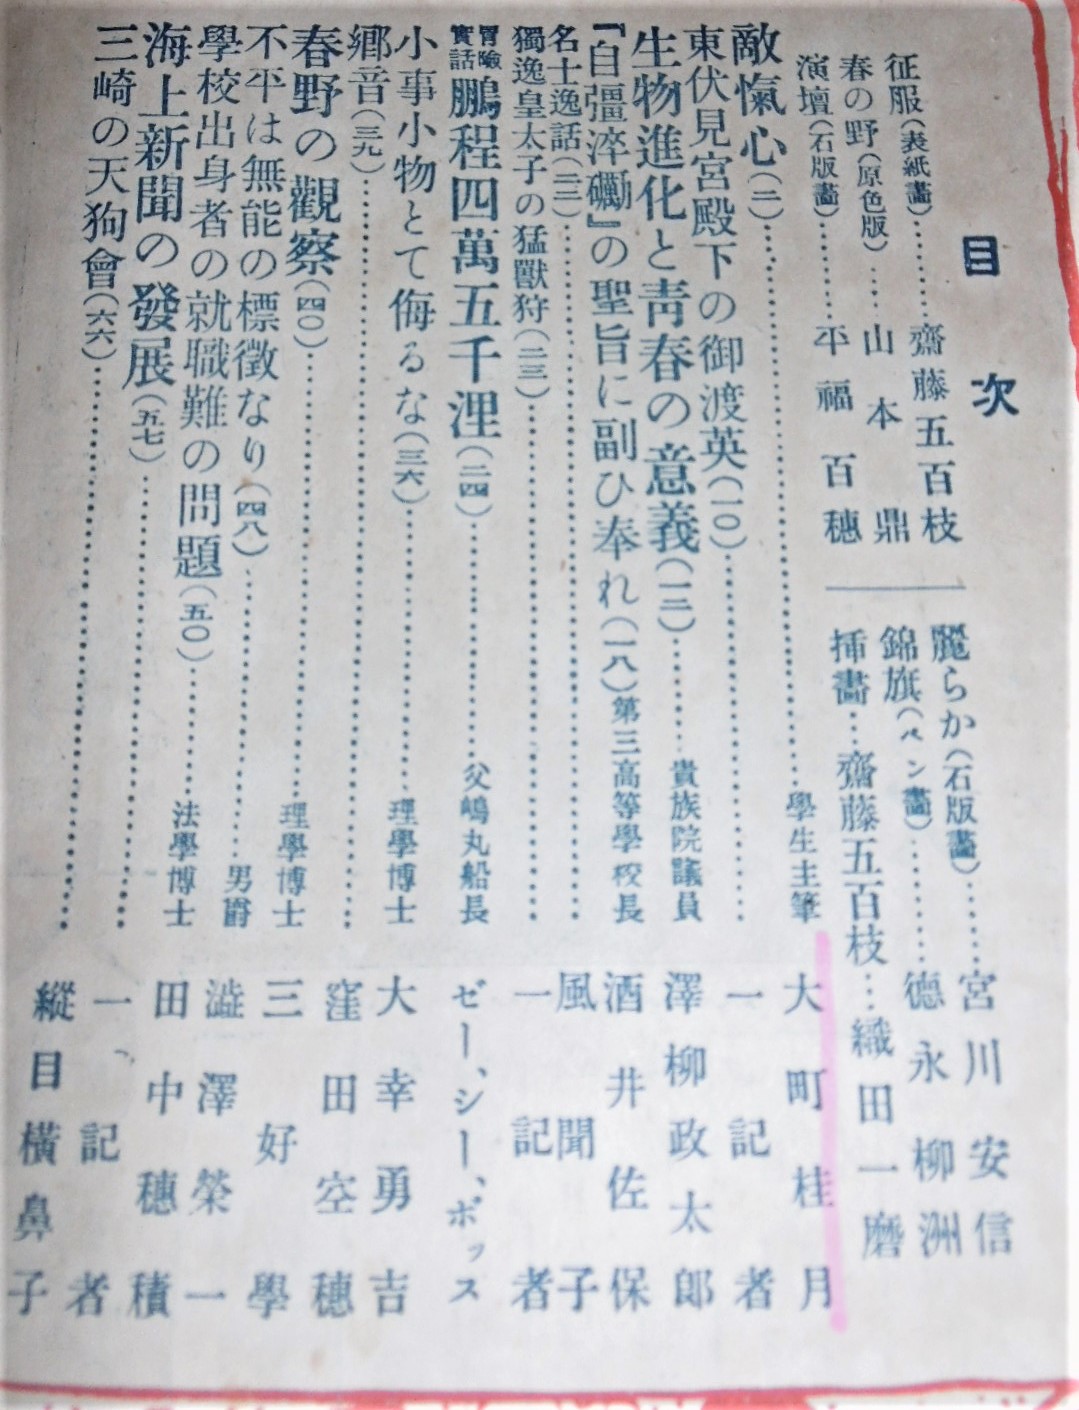 目次
征服(表紙畫)………齋藤五百枝
春の野(原色版)……山本鼎
演壇(石版畫)………平福百穗
麗らか(石版畫)………宮川安信
錦旗(ペン畫)…………德永柳洲
挿畫…齋藤五百枝…織田一磨
敵愾心(二)…………學生主筆 大町桂月
東伏見宮殿下の御渡英(一〇)…………一記者
生物進化と靑春の意義(一二)………貴族院議員 澤柳政太郎
『自彊淬礪』の聖旨に副ひ奉れ(一八)第三高等學校長 酒井佐保
名士逸話(二二)…………風聞子
獨逸皇太子の猛獸狩(二三)…………一記者
冒險實話鵬程四萬五千浬(二四)…………父嶋丸船長 ゼー、シー、ボッス
小事小物とて侮るな(三六)…………理學博士 大幸勇吉
鄕音(三九)…………窪田空穗
春野の觀察(四〇)…………理學博士 三好學
不平は無能の標徵なり(四八)…………男爵 澁澤榮一
學校出身者の就職難の問題(五〇)………法學博士 田中穗積
海上新聞の發展(五七)…………一、記者
三崎の天狗會(六六)…………縱目橫鼻子